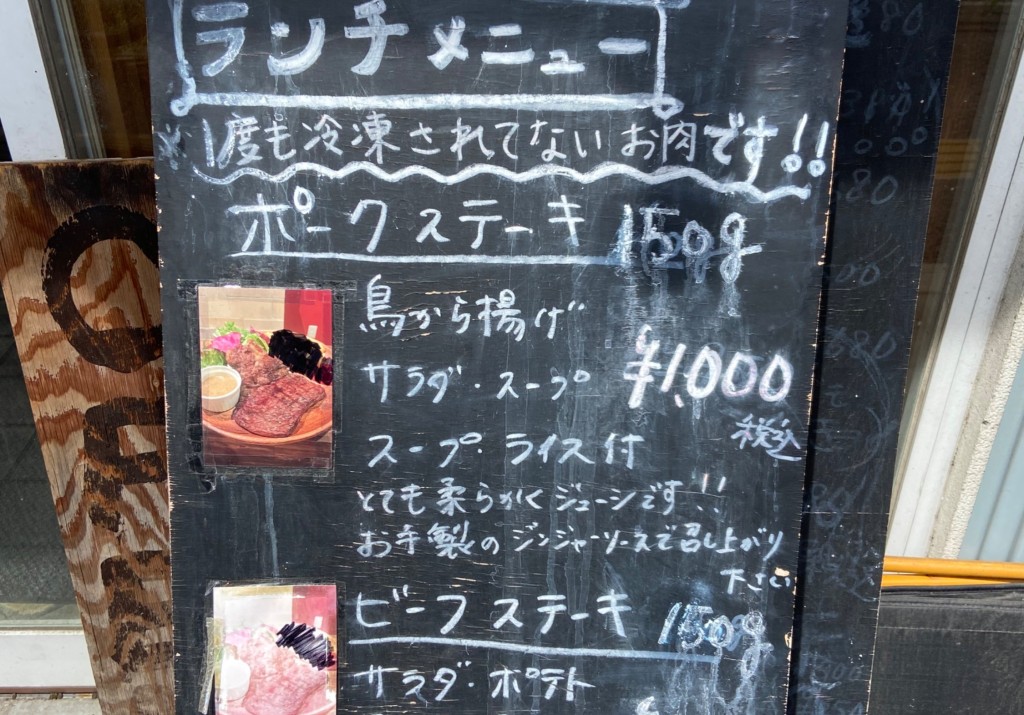 ランチメニュー
※1度も冷凍されてないお肉です!!
ポークステーキ 150g
鳥から揚げ
サラダ・スープ ¥1,000
税込
スープ・ライス付
とても柔らかくジューシです!!
お手製のジンジャーソースで召し上がり
下さい
ビーフステーキ 150g
サラダ・ポテト